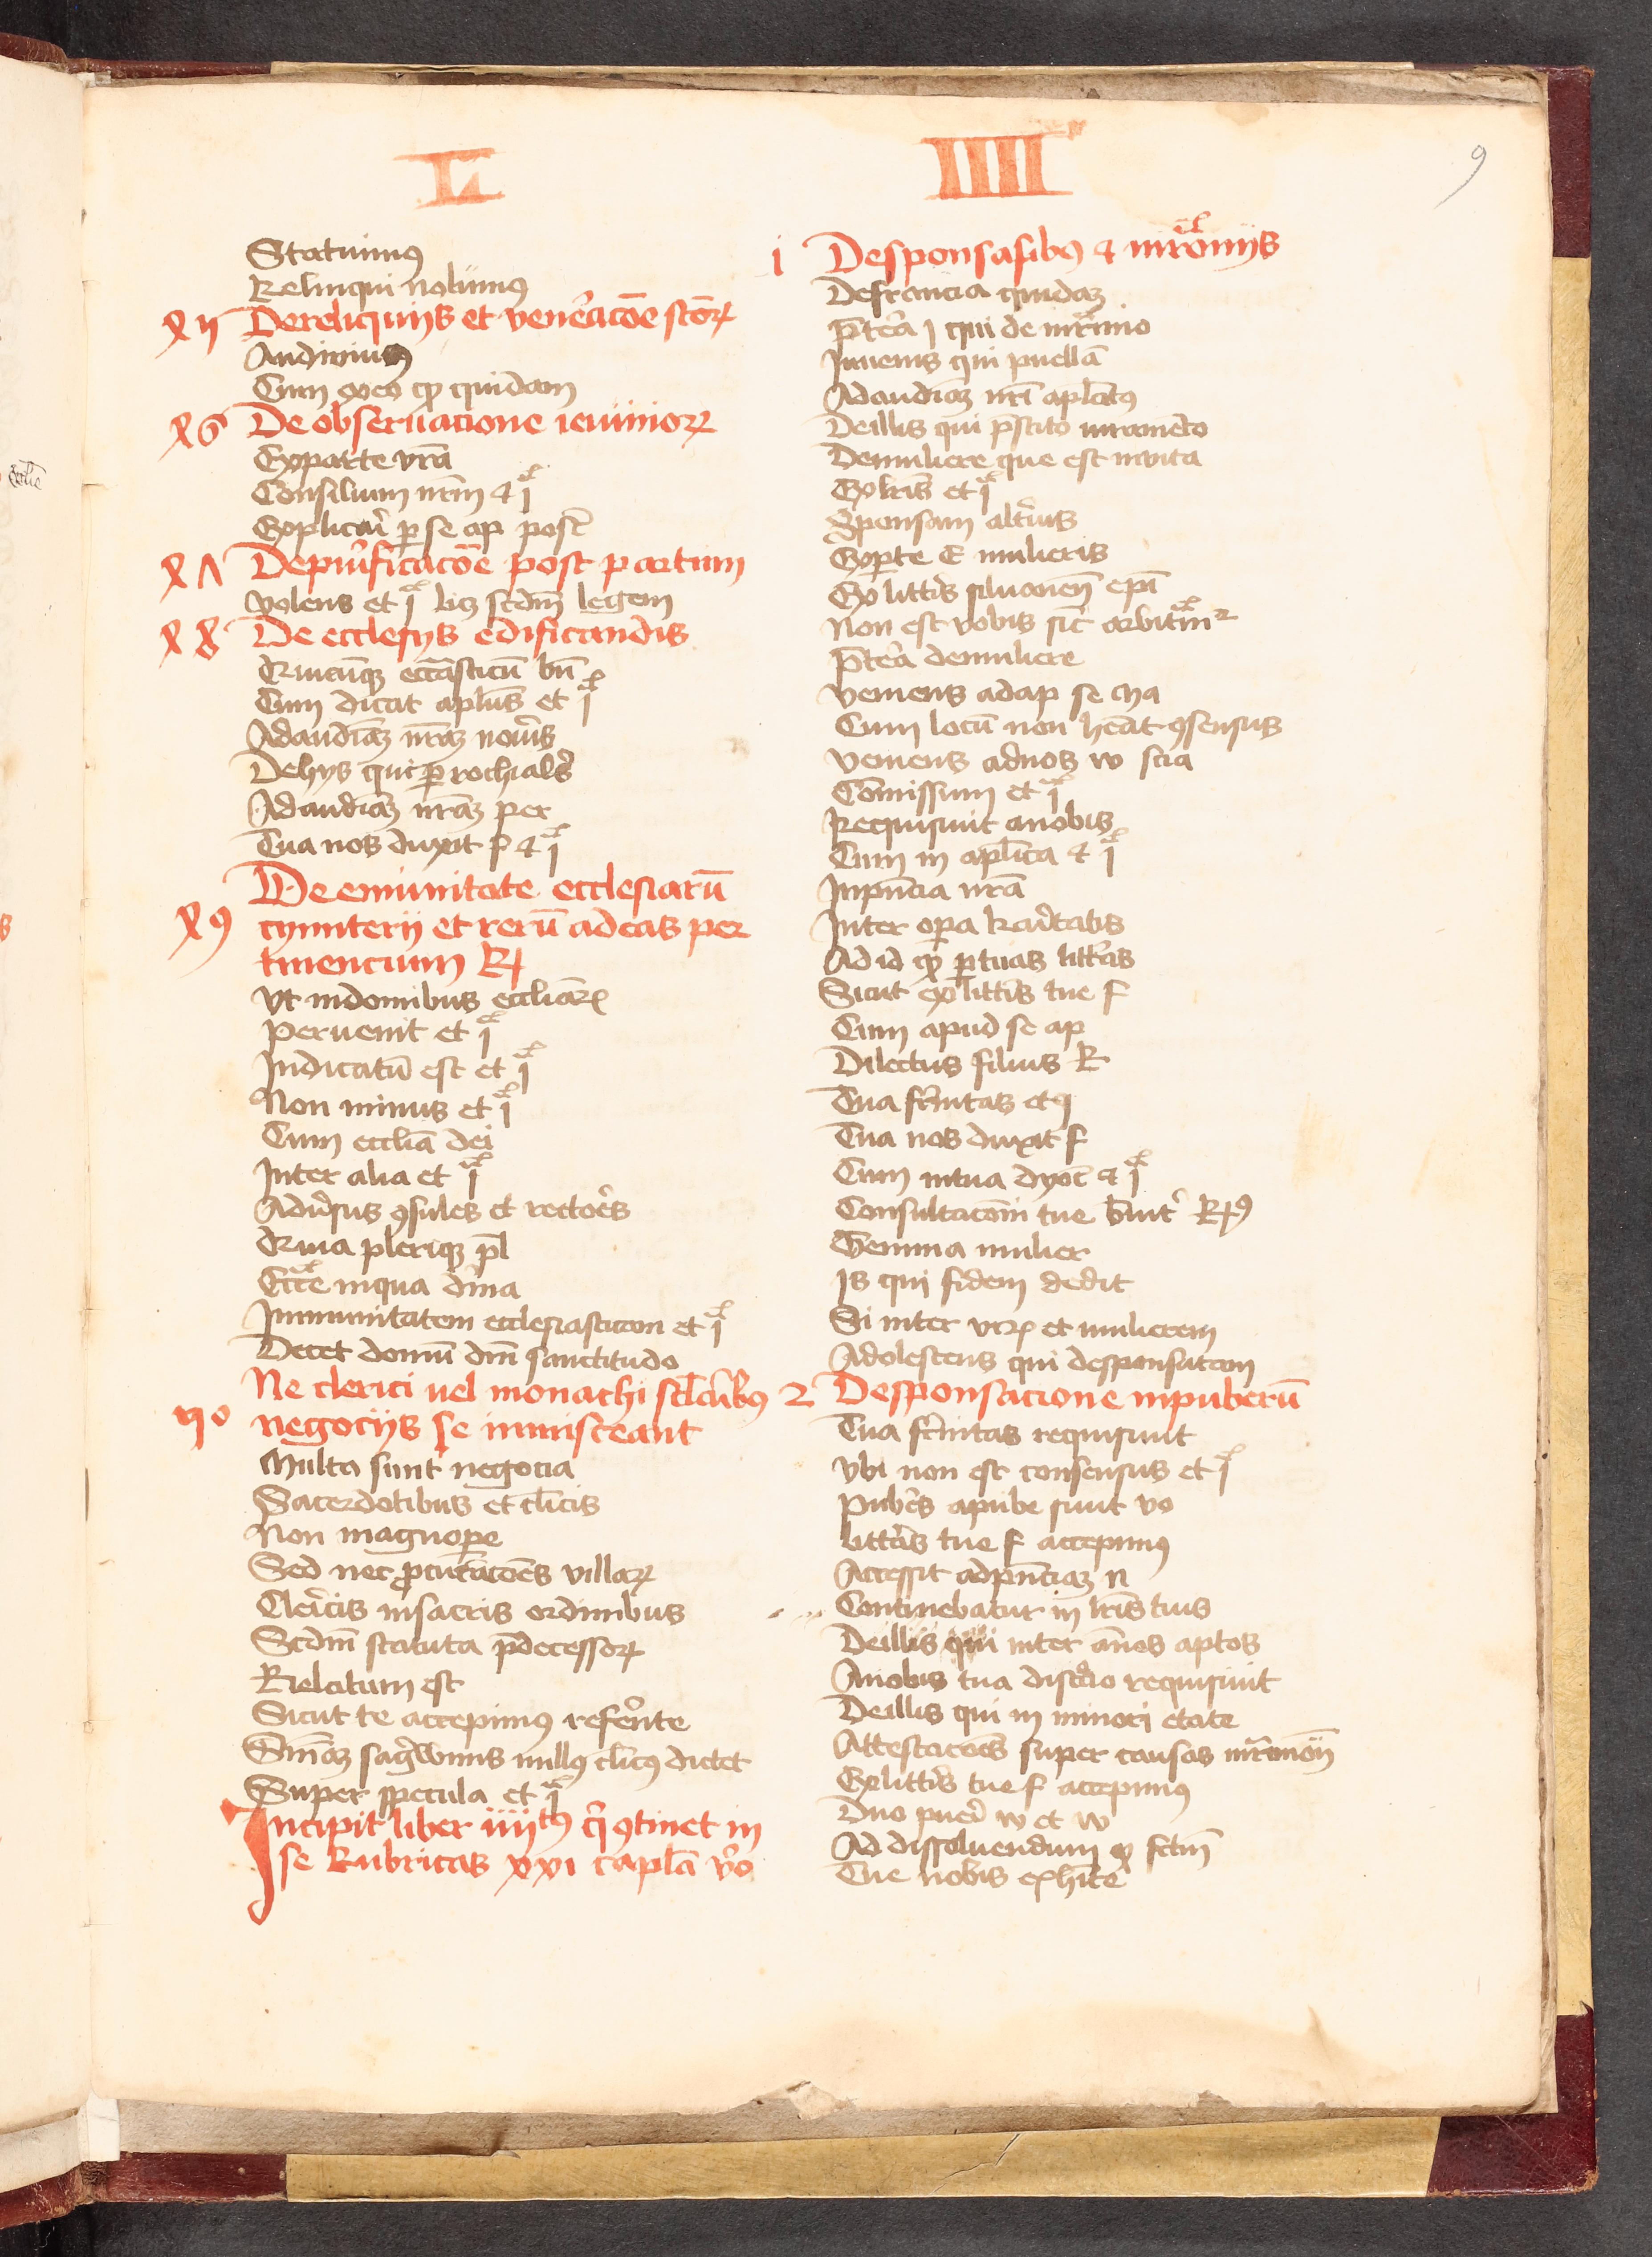 9
L IIII
Statuimus
Relinqui nolumus
xlv De reliquiis et veneracōe sctōrꝝ
Audivimus
Cum ex eo ꝙ quidam
x46 De observacione ieiuniorꝝ
Ex parte vrā
Consilium nrm̄ et i
Explicari per se ap post
x47 De purificacōe post partum
Volens et i licꝫ scdm̄ legem
x48 De ecclesiis edificandis
Quicūqꝫ eccāsticū bn̄
Cum dicat aplūs et i
Ad audiēaꝫ nrāꝫ noveris
De hys qui parrochiales
Ad audiēaꝫ nrāꝫ per
Tua nos duxit f et i
De emunitate ecclesiarū
x49 cymiterij et rerū ad eas per
tinencium R
Ut in domibus eccliarꝝ
Pervenit et i
Indicatū est et i
Non minus et i
Cum eccliā dei
Inter alia et i
Adversus ꝯsules et rectores
Quia pleriqꝫ pl
Ecce in qua divina
Inmunitatem ecclesiasticam et i
Decet domū dm̄ sanctitudo
Ne clerici vel monachi sclaribꝰ
50 negociis se inmisceant
Multa sunt negocia
Sacerdotibus et clicis
Non magnope
Sed nec procuracōes villarꝝ
Clericis in sacris ordinibus
Scdm̄ statuta pdecessorꝝ
Relatum est
Sicut te accepimus referente
Sniaꝫ sagwinis nullus clicus dictet
Super specula et i
Incipit liber iiijtus q ꝯtinet in
se Rubricas xxi capla vo
1 De sponsalibꝰ et mrōniis
De francia quidaꝫ
Ptea i qui de mrimio
Iuvenis qui puellā
Ad audiēaꝫ nri aplatus
De illis qui pstito iuramēto
De muliere que est invita
Ex lris et i
Sponsam alterius
Ex pte E mulieris
Ex litteris silvanen epi
Non est vobis sic arbitrm
Ptea de muliere
Veniens ad ap se ma
Cum locū non heāt ꝯsensus
Veniens ad nos w scia
Comissum et i
Requisivit a nobis
Cum in aplica et i
In pncia nrā
Inter opa karitatis
Ad id ꝙ per tuas litteras
Sicut ex litteris tue f
Cum apud se ap
Dilectus filius R
Tua frnitas et i
Tua nos duxit f
Cum in tua dyoc et i
Consultacōni tue
Gemma mulier
Is qui fidem dedit
Si inter virꝝ et mulierem
Adolescens qui desponsatam
2 De sponsacione inpuberū
Tua frnitas requisivit
Ubi non est consensus et i
Puberes a pube sunt vo
Litteras tue f accepimus
Accessit ad pnciaꝫ n
Continebatur in lris tuis
De illis qui inter annos aptos
A nobis tua discrecio requisivit
De illis qui in minori etate
Attestacōes super causas mrimon
Ex litteris tue f accepimus
Duo pueri w et w
Ad dissolvendum ꝙ fctm̄
Tue nobis exhite